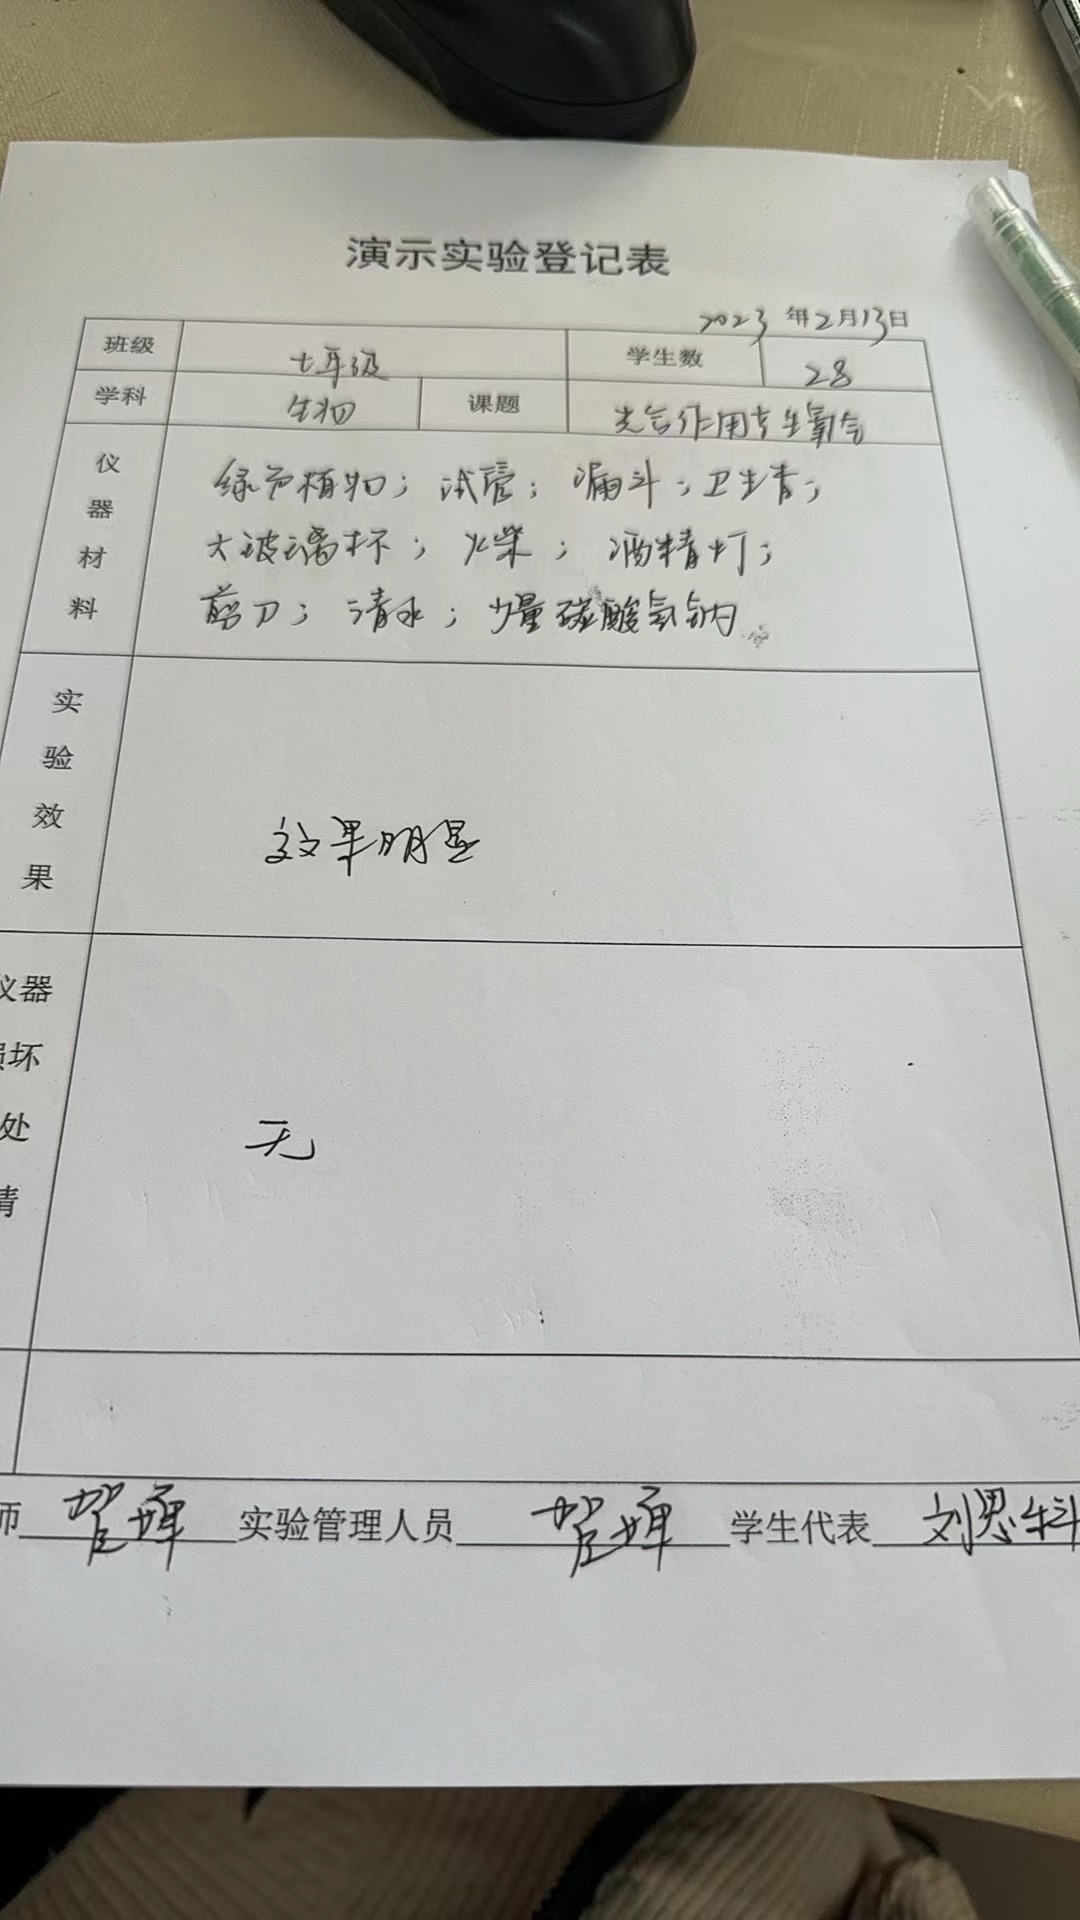 演示实验登记表
2023年2月13日
班级 七年级 学生数 28
学科 生物 课题 光合作用产生氧气
仪器材料 绿色植物；试管；漏斗；卫生香；
大玻璃杯；火柴；酒精灯；
剪刀；清水；少量碳酸氢钠
实验效果 效果明显
仪器
损坏
处
情
无
师 实验管理人员 学生代表 刘思科